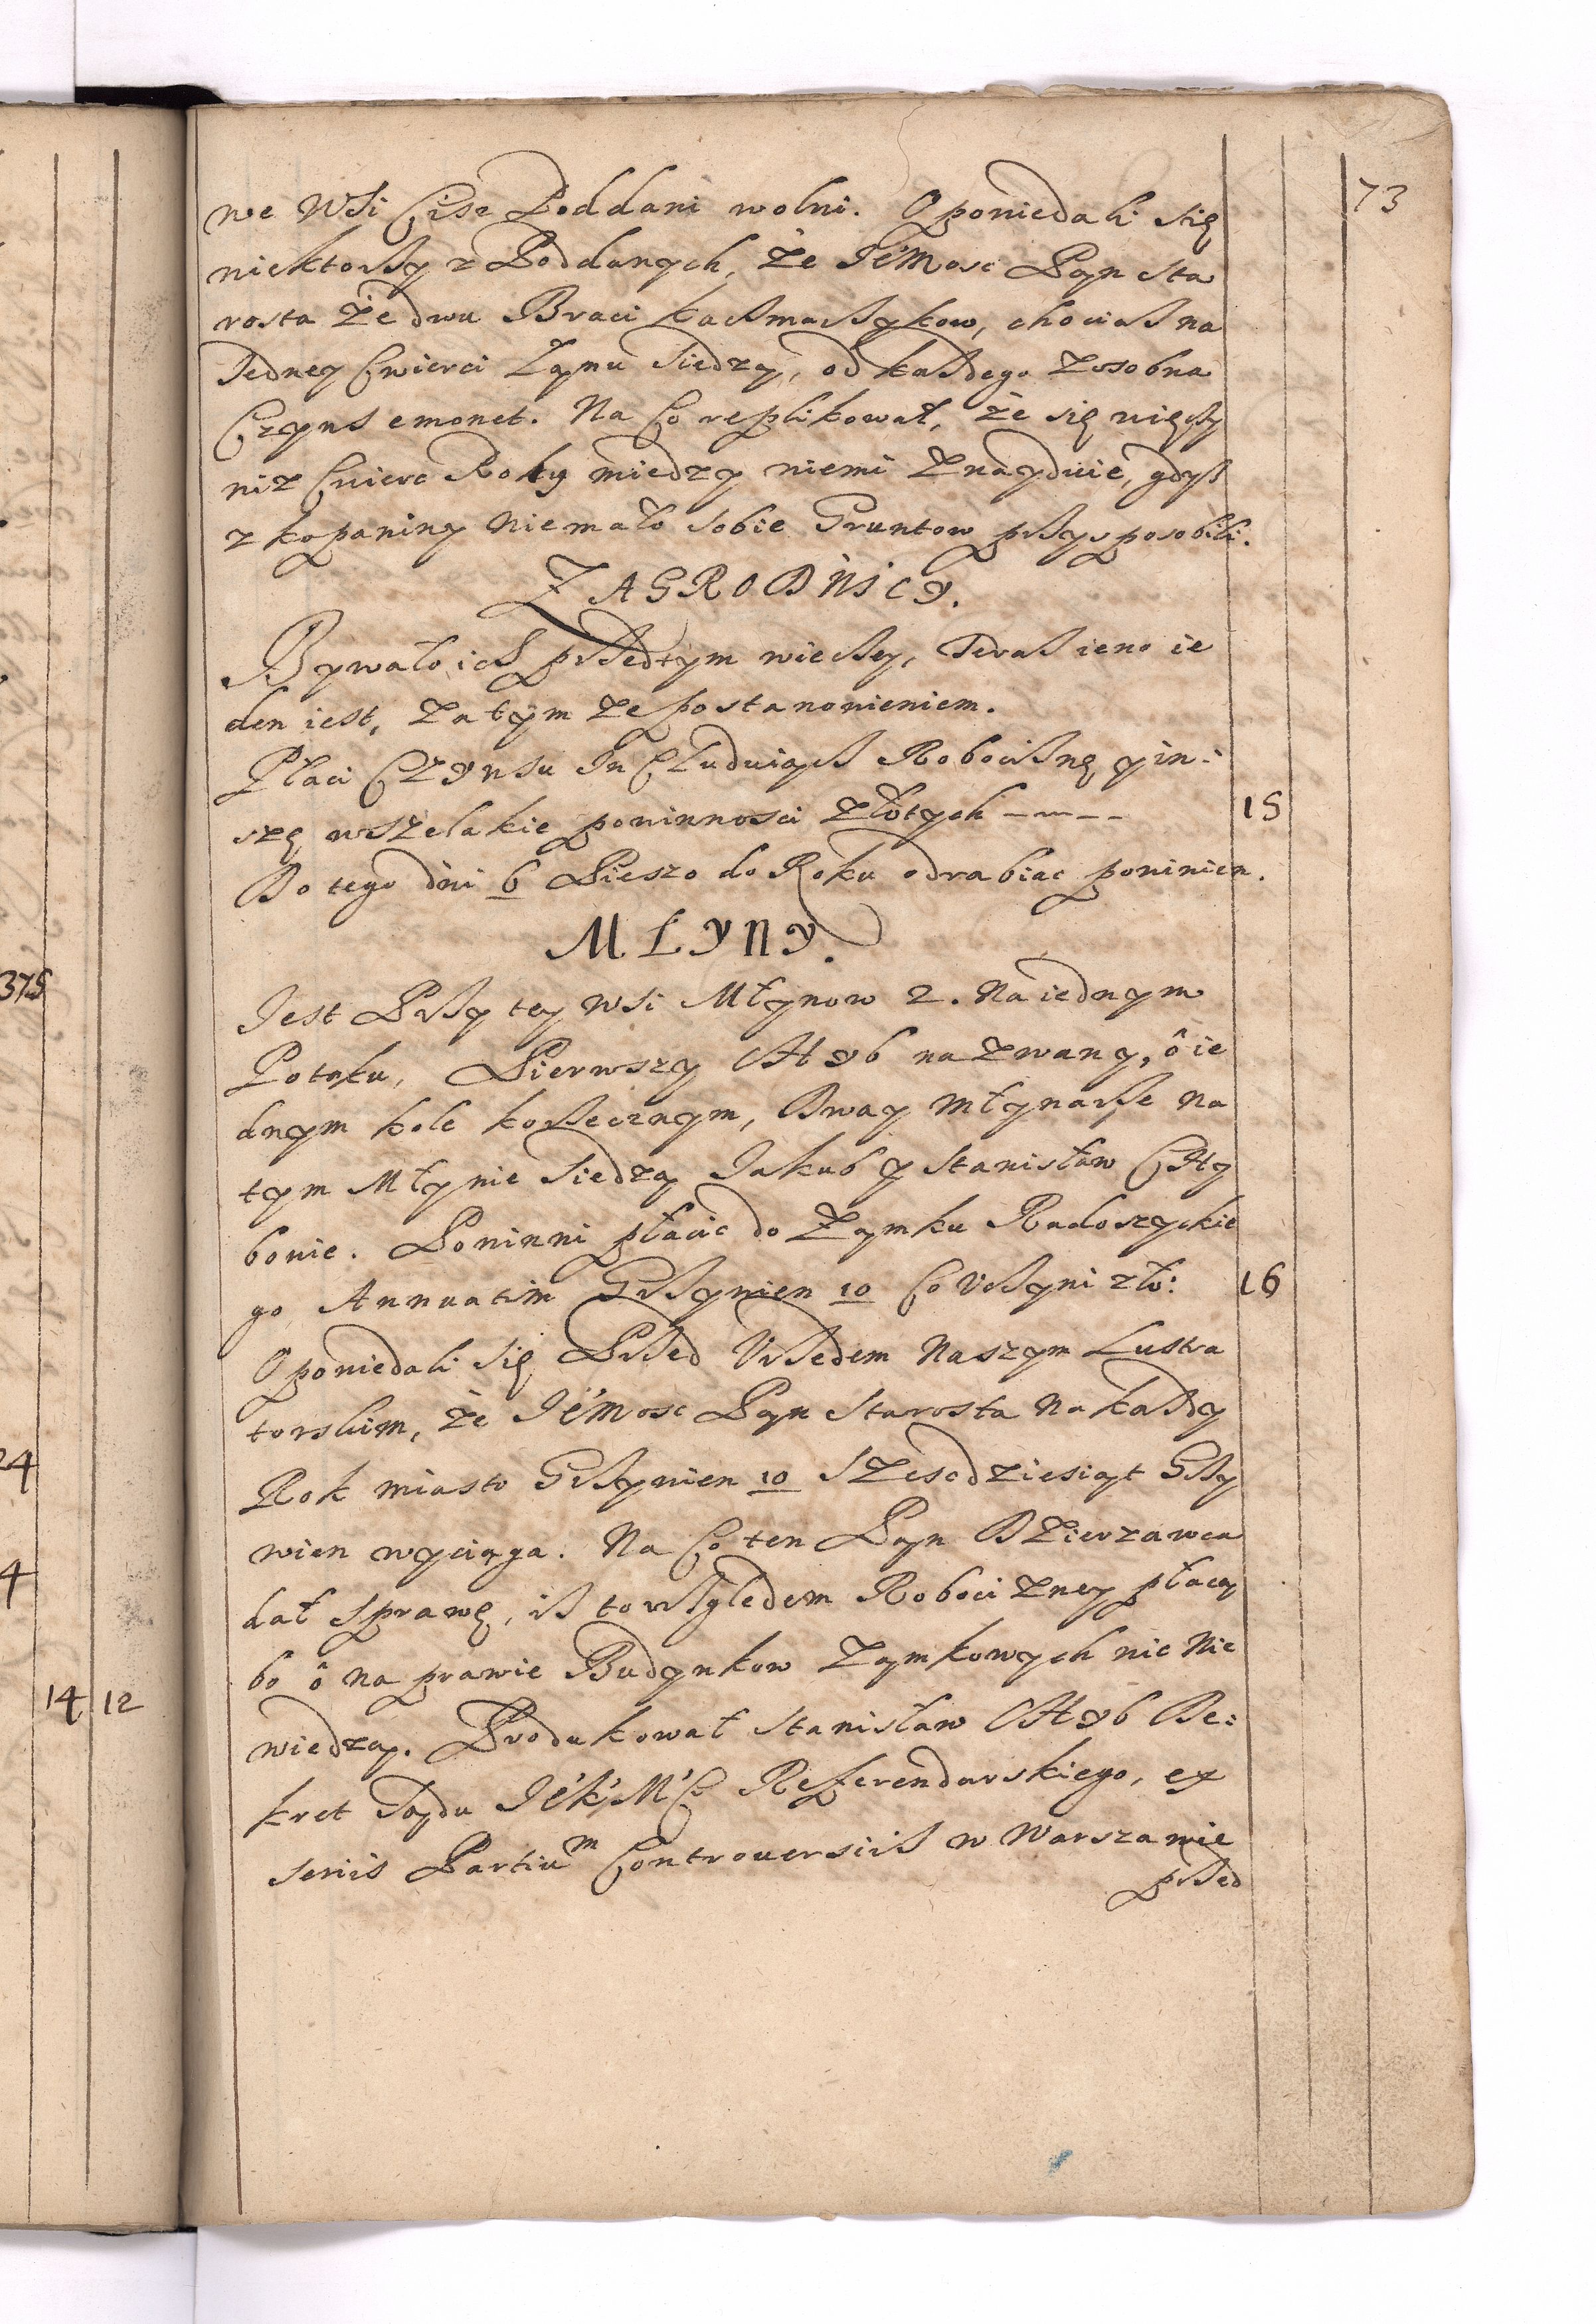 73
we Wsi Cise Poddani wolni. Opowiedali się
niektorzy z Poddanych, że JéMosc Pan Sta
rosta że dwu Braci Kaczmarzykow, chociasz na
Jedney Cwierci Łanu siedzą, od kazdego zosobna
Czynsemonet. Na Co replikował, że się więczy
niz Cwierc Roly miedzy niemi znayduie, gdysz
z kopaniny niemało sobie Gruntow przysposobili.
ZAGRODNICY.
Bywało ich przedtym wieczey, Terasz ieno ie
den iest, zatym ze postanowieniem.
Płaci Czynsu Includuiącz Robociznę yin:
szę wszelakie powinnosci złotych 15
Do tego dni 6 Pieszo do Roku odrabiac powinien.
MŁYNY.
Jest Przy tey Wsi Młynow 2. Na iednym
Potoku, Pierwszy Chyb nazwany, ô ie
dnym kole korzecznym, Dway Młynarze na
tym Młynie siedzą Jakub y Stanisław Chy
bowie. Powinni płacic do Zamku Radoszyckie
go Annuatim Grzywien 10 Co Uczyni zło: 16
Opowiedali się Przed Urzędem Naszym Lustra
torskim, że JéMosc Pan Starosta na kazdy
Rok miasto Grzywien 10 Szescdziesiąt Grzy
wien wyciąga. Na Co ten Pan Dzierzawca
dał sprawę, isz to względem Robocizney płacą
bo ô naprawie Budynkow Zamkowych nic nie
wiedzą. Produkował Stanisław Chyb De:
kret Sądu Jé K M C Referendarskiego, ex
seriis Partium Controuersiis w Warszawie
przed
375
24
4
14 12